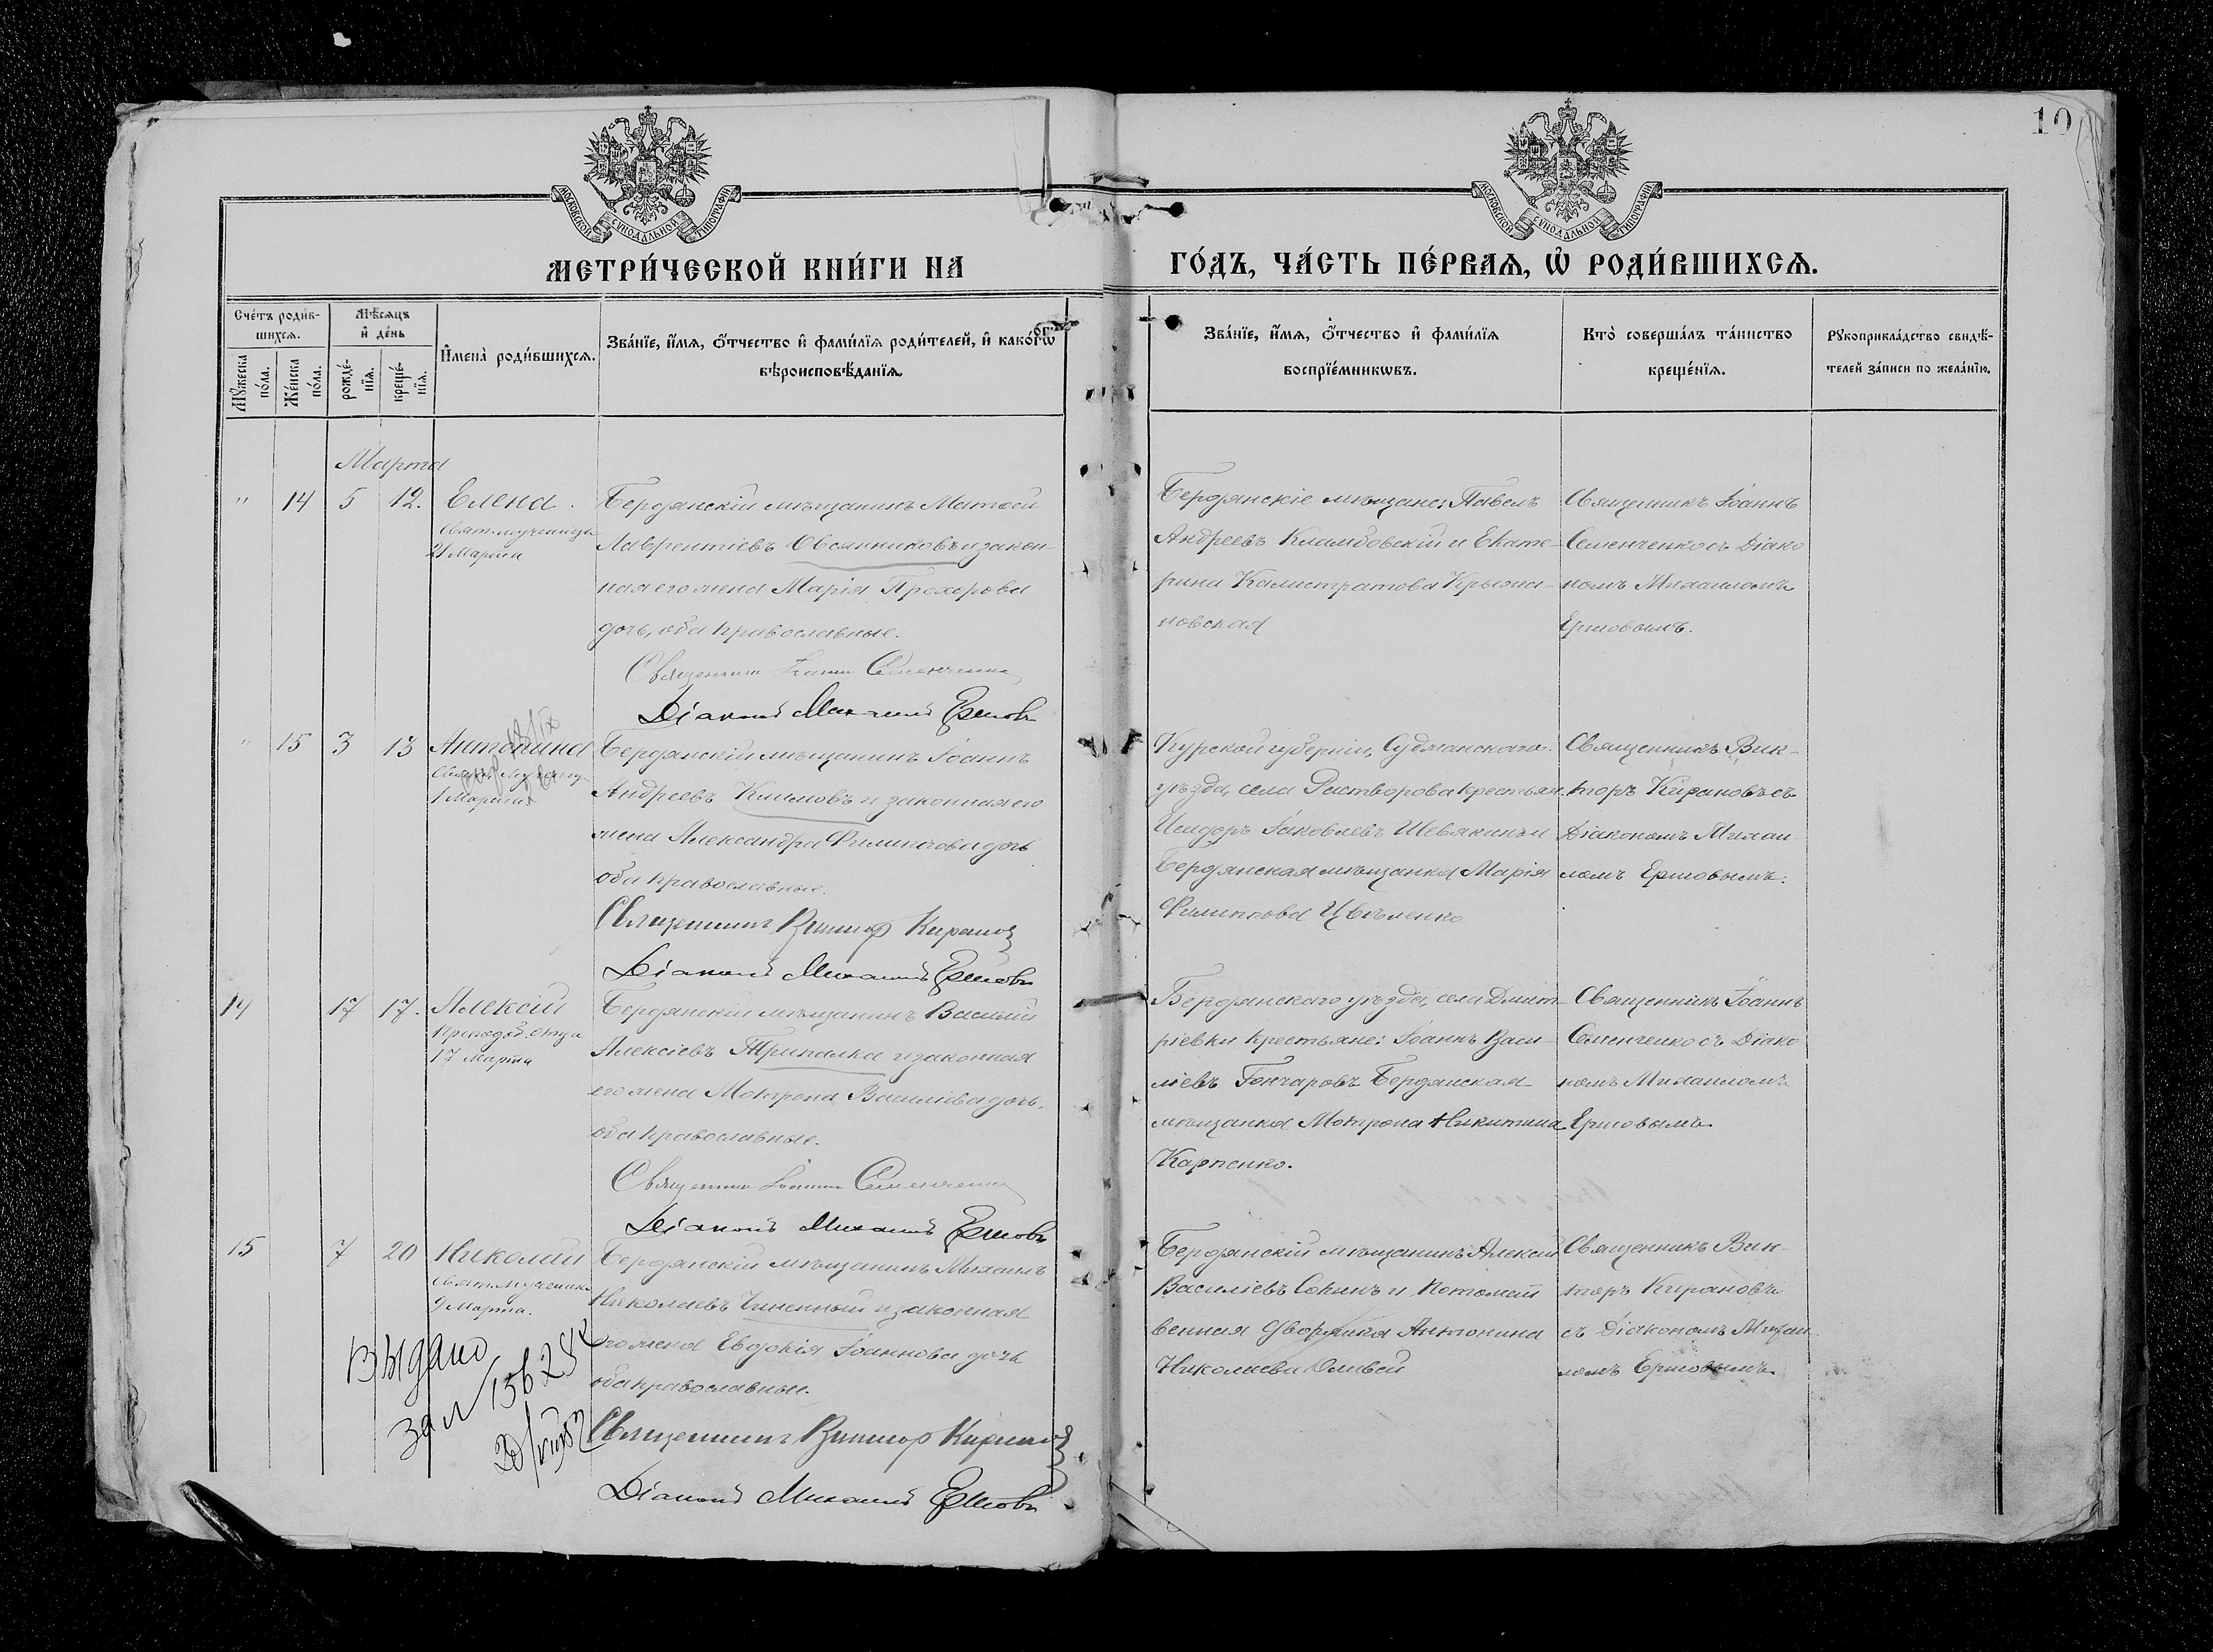 10
МОСКОВСКОЙ СѴНОДАЛЬНОЙ ТИПОГРАФІИ
МОСКОВСКОЙ СѴНОДАЛЬНОЙ ТИПОГРАФІИ
МЕТРИ́ЧЕСКОЙ КНИ́ГИ НА
ГО́ДЪ, ЧА́СТЬ ПЕ́РВАѦ, Ѡ҆ РОДИ́ВШИХСѦ.
Сче́тъ роди́в-
шихсѧ.
Мꙋ́жеска
по́ла.
Же́нска
по́ла.
Мѣ́сѧцъ
и҆ де́нь
рожде́-
нїѧ.
креще́-
нїѧ.
И҆мена̀ роди́вшихсѧ.
Зва́нїе, и҆́мѧ, ѻ҆́тчество и҆ фами́лїѧ роди́телей, и҆ како́гѡ
вѣроисповѣ́данїѧ.
Зва́нїе, и҆́мѧ, ѻ҆́тчество и҆ фами́лїѧ
воспрїе́мникѡвъ.
Кто̀ соверша́лъ та́инство
креще́нїѧ.
Рꙋкоприкла́дство свидѣ́-
телей за́писи по жела́нїю.
Марта
" 14 5 12. Елена.
Свят. мученицы
21 Марта
Бердянскій мѣщанинъ Матѳей
Лаврентіевъ Овсянниковъ и закон-
ная его жена Марія Прохорова
дочь, оба православные.
Священникъ Іоаннъ Семенченко
Діаконъ Михаилъ Ершовъ
Бердянскіе мѣщане: Павелъ
Андреевъ и Екате-
рина Калистратова Крыжа-
новская
Священникъ Іоаннъ
Семенченко съ Діако
номъ Михаиломъ
Ершовымъ.
" 15 3 13 Антонина
1 Марта
Бердянскій мѣщанинъ Іоаннъ
Андреевъ Климовъ и законная его
жена Александра Филиппова дочь
оба православные.
Священникъ Викторъ Кирановъ
Діаконъ Михаилъ Ершовъ
Курской губерніи, Суджанскаго
уѣзда, села Растворова крестьян.
Исидоръ Іаковлевъ Шевякинъ и
Бердянская мѣщанка Марія
Филиппова
Священникъ Вик-
торъ Кирановъ съ
Діакономъ Михаи-
ломъ Ершовымъ.
14 17 17. Алексій
Преподоб. отца
17 Марта
Бердянскій мѣщанинъ Василій
Алексіевъ Трипалка и законная
его жена Мотрона Василіева дочь,
оба православные.
Священникъ Іоаннъ Семенченко
Діаконъ Михаилъ Ершовъ
Бердянскаго уѣзда, села Дмит-
ріевки крестьяне: Іоаннъ Васи-
ліевъ Гончаровъ Бердянская
мѣщанка Мотрона Никитина
Карпенко.
Священникъ Іоаннъ
Семенченко съ Діако
номъ Михаиломъ
Ершовымъ
15 7 20 Николай
Свят. мученика
9 Марта.
Бердянскій мѣщанинъ Михаилъ
Николаевъ Чиненный и законная
его жена Евдокія Іоаннова дочь
оба православные.
Священникъ Викторъ Кирановъ
Діаконъ Михаилъ Ершовъ
Бердянскій мѣщанинъ Алексій
Василіевъ Сокинъ и Потомст
венная дворянка Антонина
Николаева
Священникъ Вик-
торъ Кирановъ
съ Діакономъ Михаи
ломъ Ершовымъ
Выдано
за №